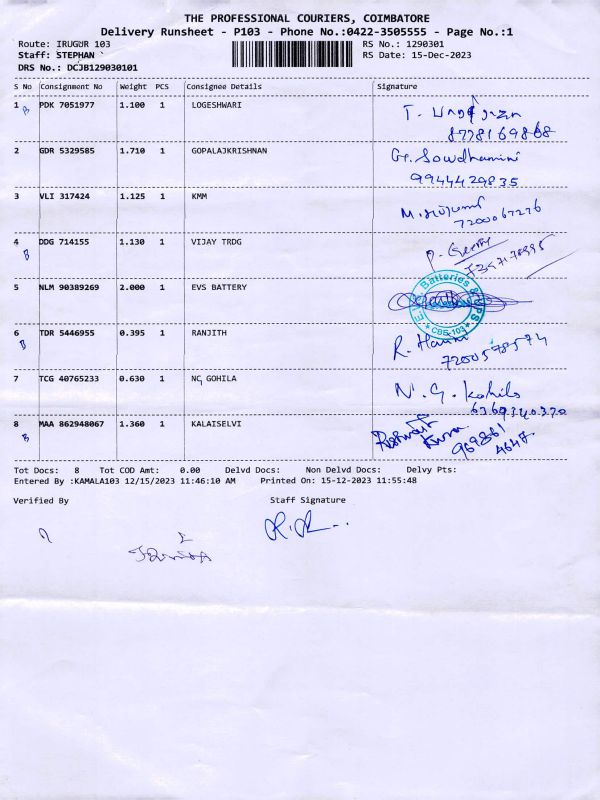 THE PROFESSIONAL COURIERS, COIMBATORE
Delivery Runsheet - P103 - Phone No.:0422-3505555 - Page No.:1
Route: IRUGUR 103 RS No.: 1290301
Staff: STEPHAN RS Date: 15-Dec-2023
DRS No.: DCJB129030101
S No Consignment No Weight PCS Consignee Details Signature
1 PDK 7051977 1.100 1 LOGESHWARI
8778169868
2 GDR 5329585 1.710 1 GOPALAJKRISHNAN G. Sowdhamini
9944429835
3 VLI 317424 1.125 1 KMM
7200067276
4 DDG 714155 1.130 1 VIJAY TRDG
5 NLM 90389269 2.000 1 EVS BATTERY
Batteries & UPS
CBE-103
6 TDR 5446955 0.395 1 RANJITH R.
7200578574
7 TCG 40765233 0.630 1 NC GOHILA N. G. Kohila
6369340370
8 MAA 862948067 1.360 1 KALAISELVI
969861
4647
Tot Docs: 8 Tot COD Amt: 0.00 Delvd Docs: Non Delvd Docs: Delvy Pts:
Entered By :KAMALA103 12/15/2023 11:46:10 AM Printed On: 15-12-2023 11:55:48
Verified By Staff Signature